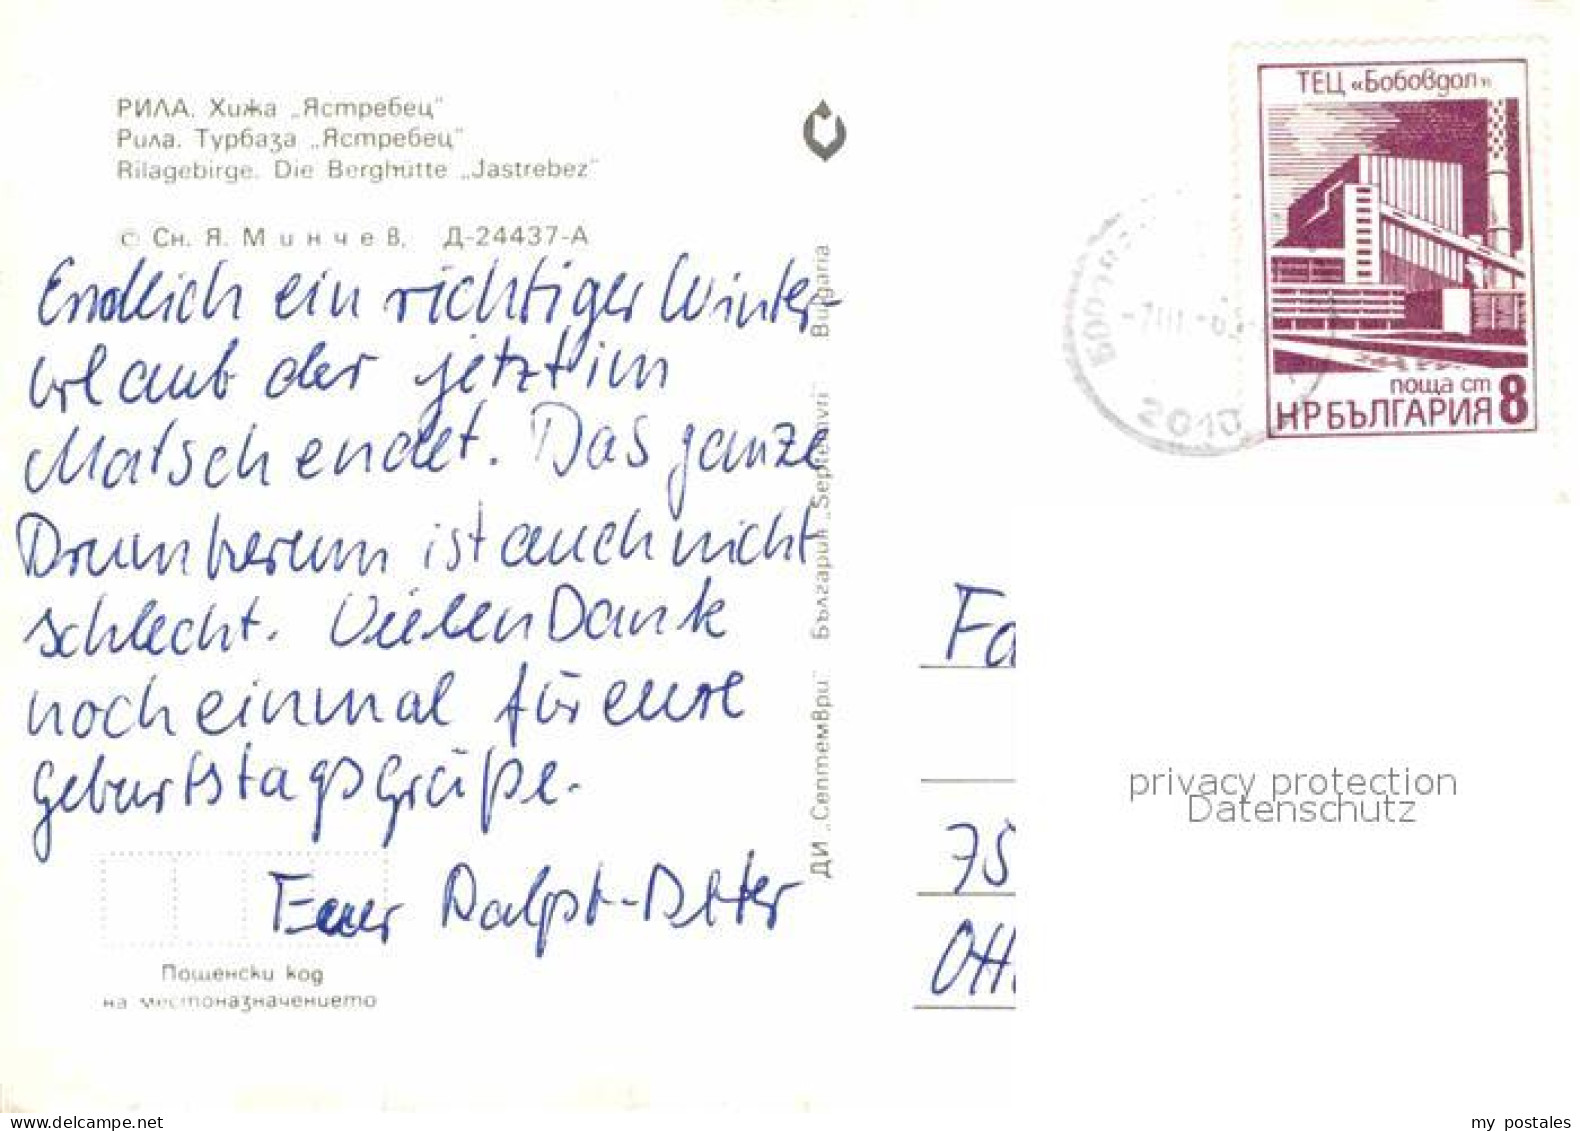 РИЛА. Хижа „Ястребец“
Рила. Турбаза „Ястребец“
Rilagebirge. Die Berghütte „Jastrebez“
© Сн. Я. Минчев, Д-24437-А
Endlich ein richtiger Winter-
urlaub der jetzt im
Matsch endet. Das ganze
Drumherum ist auch nicht
schlecht. Vielen Dank
noch einmal für eure
Geburtstagsgrüße.
Euer Ralph-Peter
Пощенски код
на местоназначението
ДИ „Септември“ България „Septemvri“ Bulgaria
ТЕЦ «Бобовдол»
поща ст
НР БЪЛГАРИЯ 8
2010
Fa
75
Ott
privacy protection
Datenschutz
delcampe.net
my postales